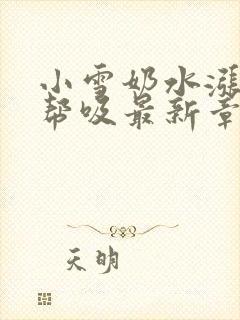 小雪奶水涨
帮吸最新章
天明